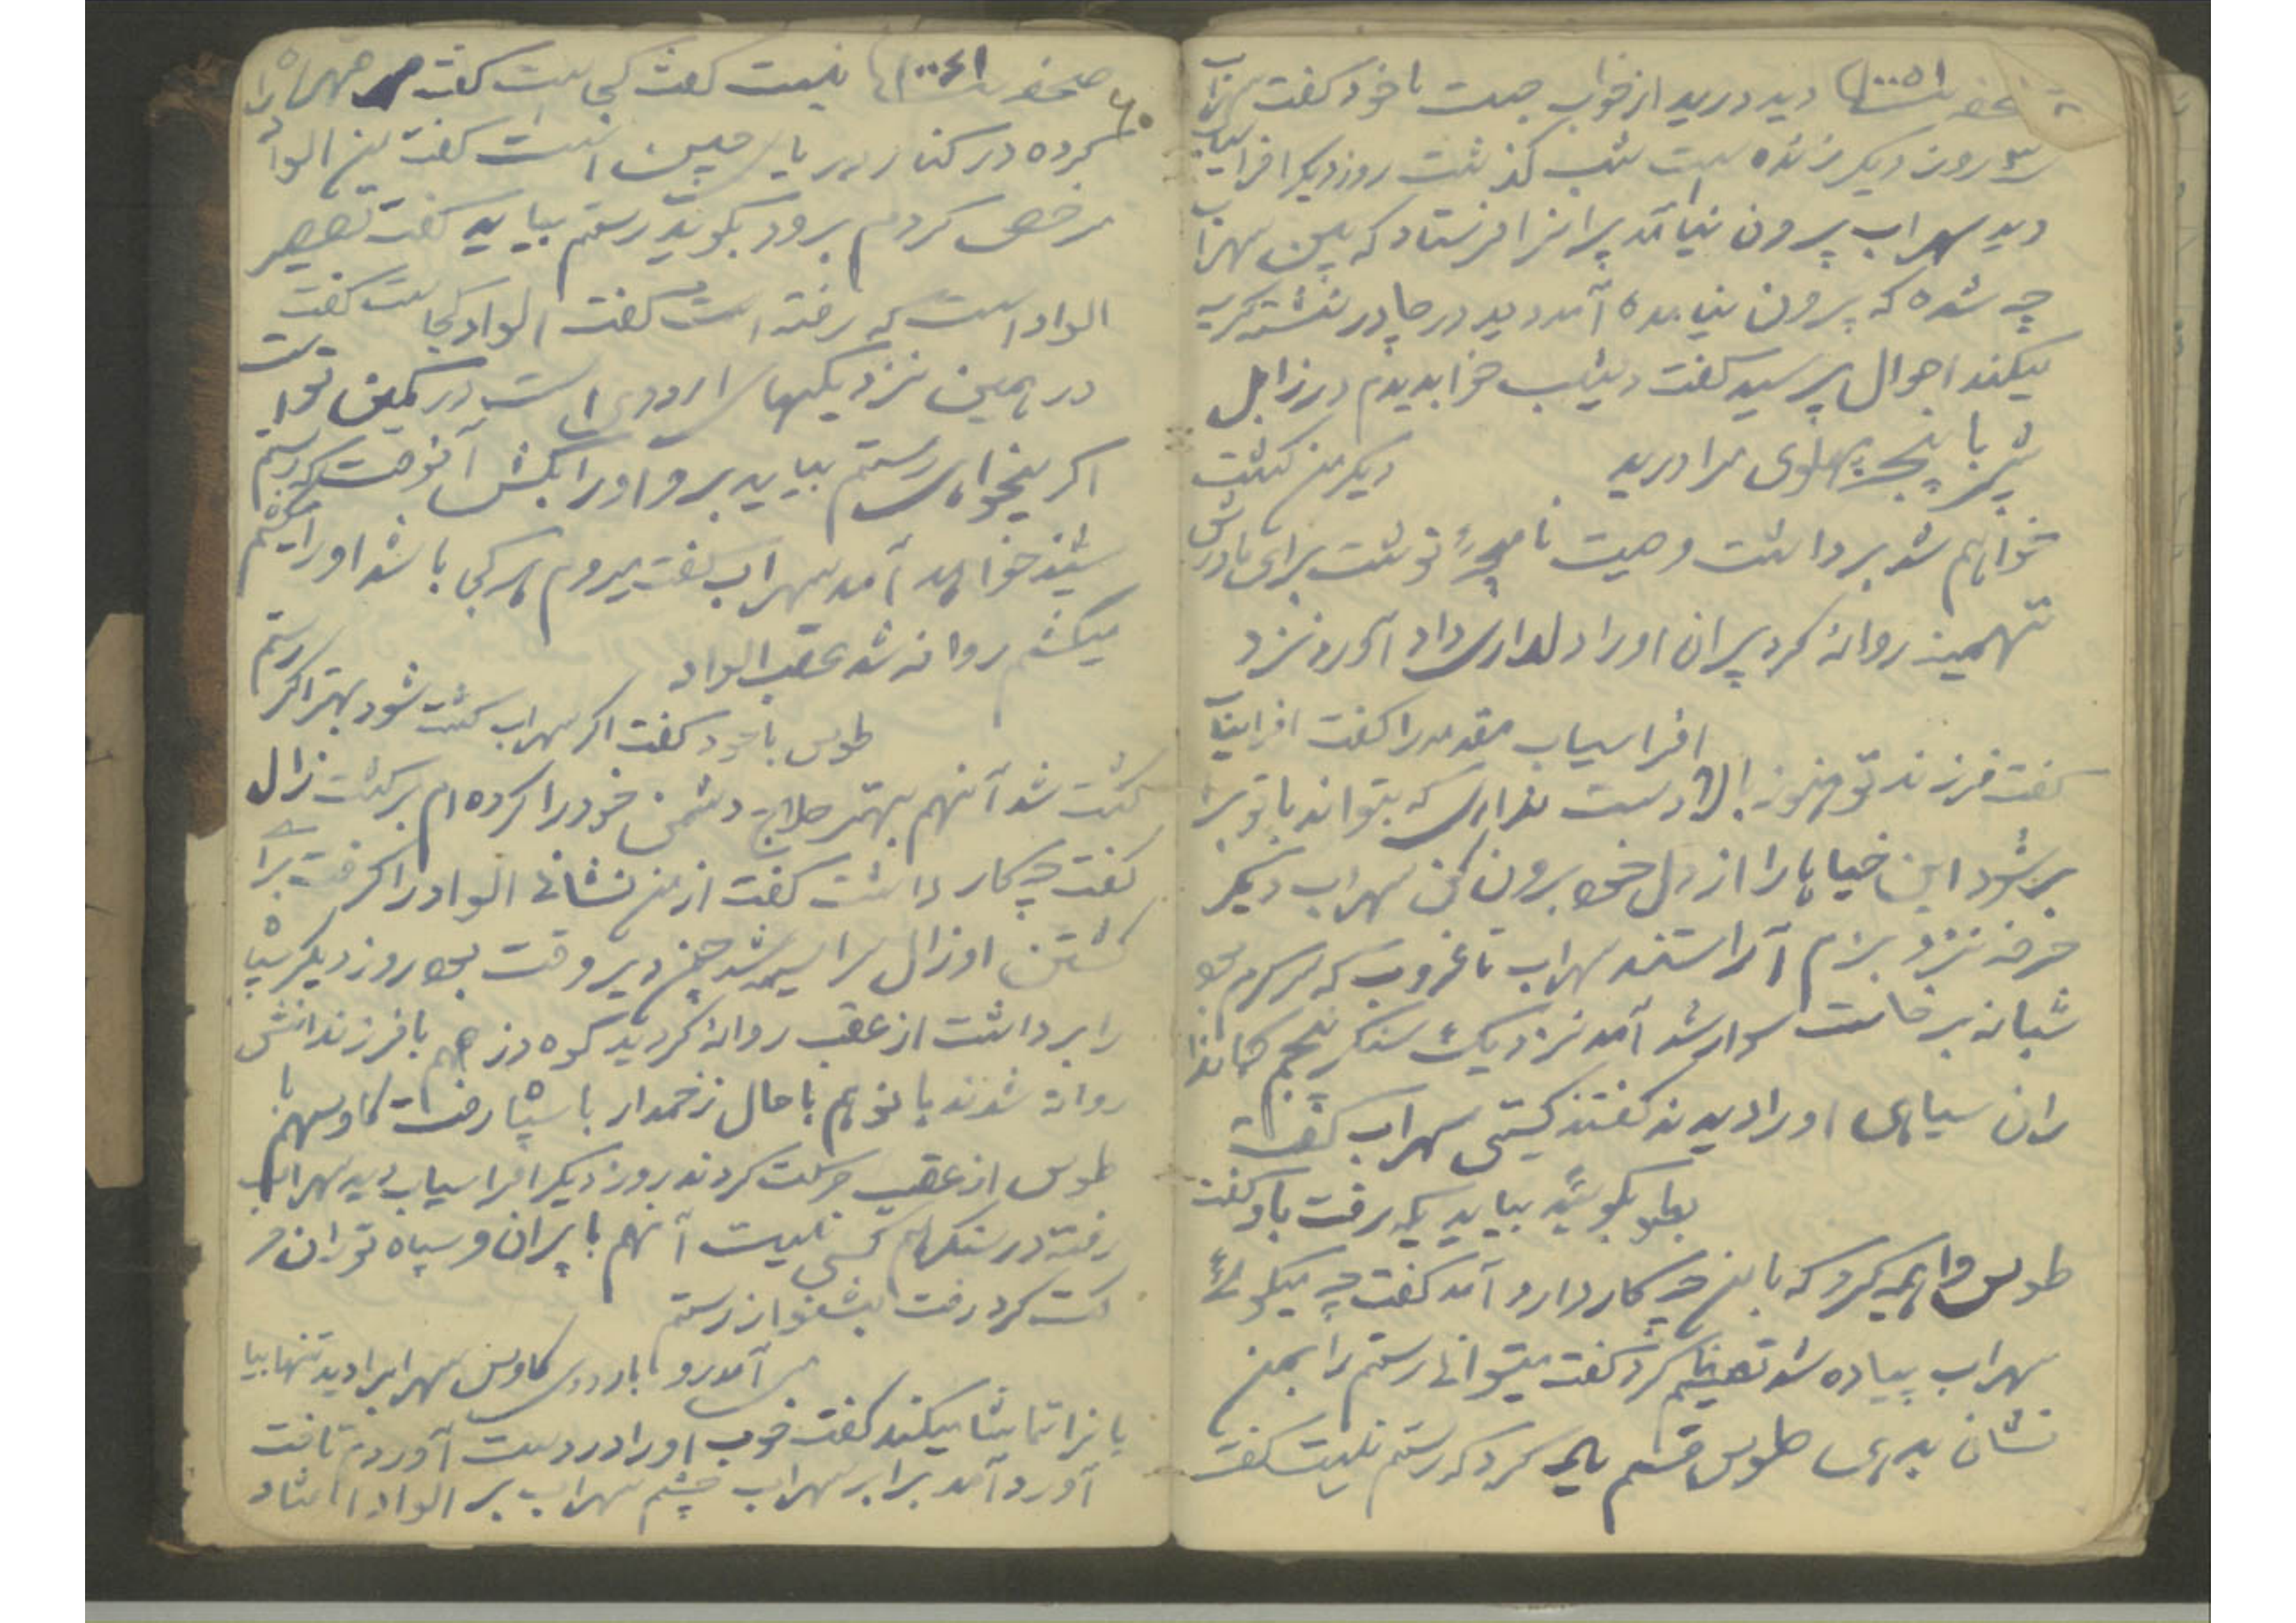 دید درید از خواب جست با خود گفت سهراب
روز دیگر زنده است شب گذشت روز دیگر افراسیاب
دید سهراب پرون نیامد پیرانرا فرستاد که ببین سهراب
چه شده که پرون نیامده آمد دید در چادر نشسته گریه
میکند احوال پرسید گفت دیشب خوابدیدم در زابل
شیر با پنجه پهلوی مرا درید دیگر من کشت
خواهم شد برداشت وصیت نامهٔ نوشت برای مادرش
تهمینه روانه کرد پیران اورا دلداری داد آورد نزد
افراسیاب مقدمه را گفت افراسیاب
گفت فرزند تو هنوز بالا دست نداری که بتواند با تو برا
بر شود این خیالها را از دل خود برون کن سهراب دیگر
حرف نزد بزم آراستند سهراب تا غروب که سرگرم بود
شبانه برخاست سوار شد آمد نزدیک سنگر پنجم کماندا
ران سیاهی اورا دیدند گفتند کیستی سهراب گفت
بطوس بگوئید بیاید یکه رفت باو گفت
طوس واهمه کرد که با من چکار دارد آمد گفت چه میگوئی
سهراب پیاده شد تعظیم کرد گفت میتوانی رستم را بمن
نشان بدهی طوس قسم یاد کرد که رستم نیست گفت
۶۰ صحفه نیست گفت کجاست گفت قهر
کرده در کنار دریای چین است گفت من الواد
مرخص کردم برود بگوید رستم بیاید گفت تقصیر
الواد است که رفته است گفت الواد کجاست گفت
در همین نزدیکیها اردوی است در کمین تو است
اگر میخواهی رستم بیاید برو اورا بکش آنوقت که رستم
شنید خواهد آمد سهراب گفت میروم هر کجا باشد اورا
میکشم روانه شد عقب الواد
طوس با خود گفت اگر سهراب کشته شود بهتر اگر رستم
کشته شد آنهم بهتر علاج دشمن خود را کرده ام برگشت زال
گفت چکار داشت گفت از من نشانی الواد را گرفت برای
کشتن او زال سراسیمه شد چون دیر وقت بود روز دیگر سپاه
را برداشت از عقب روانه گردید کوه دژ هم با فرزندانش
روانه شدند بانو هم با حال زخمدار با سپاه رفت کاوس هم با
طوس از عقب حرکت کردند روز دیگر افراسیاب دید سهراب
رفته در سنگر هم کسی نیست آنهم با پیران و سپاه توران حر
کت کرد رفت بشنو از رستم
می آمد رو باردوی کاوس سهراب را دید تنها بیا
بانرا تماشا میکند گفت خوب اورا در دست آوردم تاخت
آورد آمد برابر سهراب چشم سهراب بر الواد افتاد